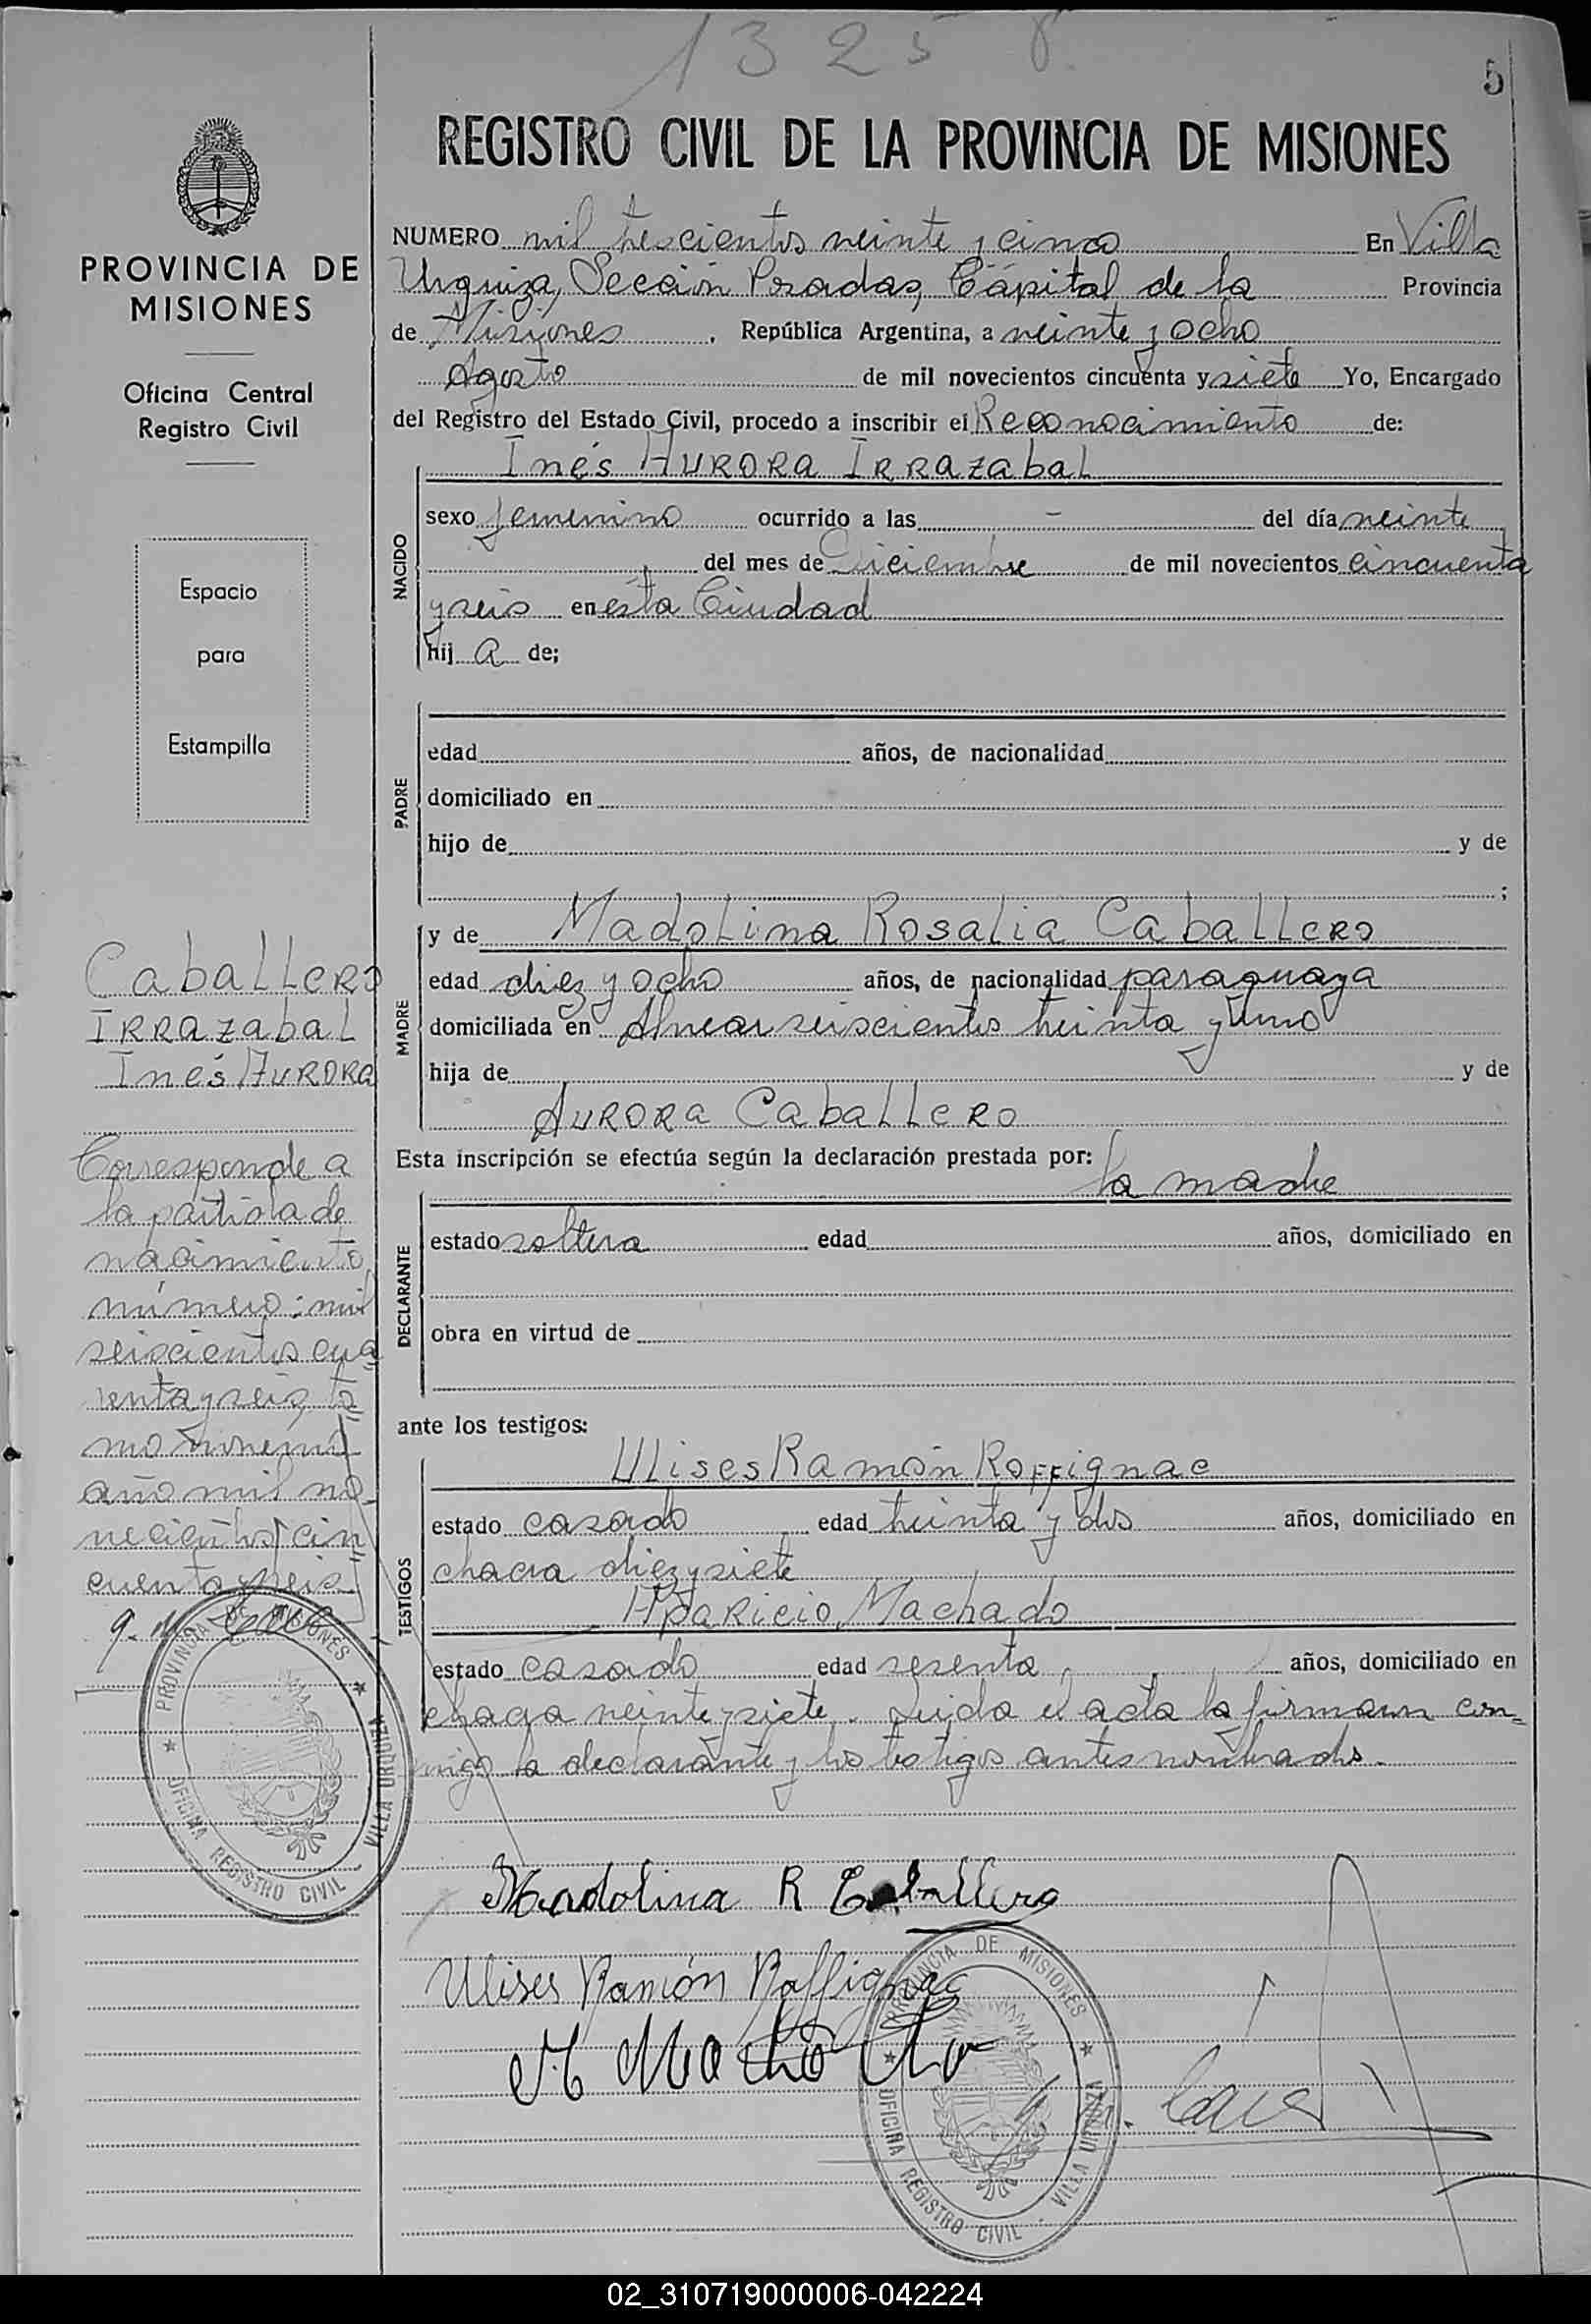 1325
5
PROVINCIA DE
MISIONES
Oficina Central
Registro Civil
Espacio
para
Estampilla
Caballero
Irrazabal
Inés Aurora
Corresponde a
la partida de
nacimiento
número: mil
seiscientos cua
renta y seis, to
mo
año mil no
vecientos cin
cuenta y seis
PROVINCIA DE MISIONES
OFICINA REGISTRO CIVIL - VILLA URQUIZA
REGISTRO CIVIL DE LA PROVINCIA DE MISIONES
NUMERO mil trescientos veinte y cinco En Villa
Urquiza, Sección Posadas, Cápital de la Provincia
de Misiones, República Argentina, a veinte y ocho
Agosto de mil novecientos cincuenta y siete Yo, Encargado
del Registro del Estado Civil, procedo a inscribir el Reconocimiento de:
Inés Aurora Irrazabal
NACIDO
sexo femenino ocurrido a las - del día veinte
del mes de Diciembre de mil novecientos cincuenta
y seis en esta Ciudad
hij a de;
PADRE
edad años, de nacionalidad
domiciliado en
hijo de y de
;
MADRE
y de Madolina Rosalia Caballero
edad diez y ocho años, de nacionalidad paraguaya
domiciliada en Alvear seiscientos treinta y uno
hija de y de
Aurora Caballero
Esta inscripción se efectúa según la declaración prestada por:
la madre
DECLARANTE
estado soltera edad años, domiciliado en
obra en virtud de
ante los testigos:
TESTIGOS
Ulises Ramón Roffignac
estado casado edad treinta y dos años, domiciliado en
chacra diez y siete
Aparicio Machado
estado casado edad sesenta años, domiciliado en
chaga veinte y siete. Leida el acta la firmam con=
migo la declarante y los testigos antes nombrados.
Madolina R Caballero
Ulises Ramón Roffignac
PROVINCIA DE MISIONES
OFICINA REGISTRO CIVIL - VILLA URQUIZA
02_310719000006-042224